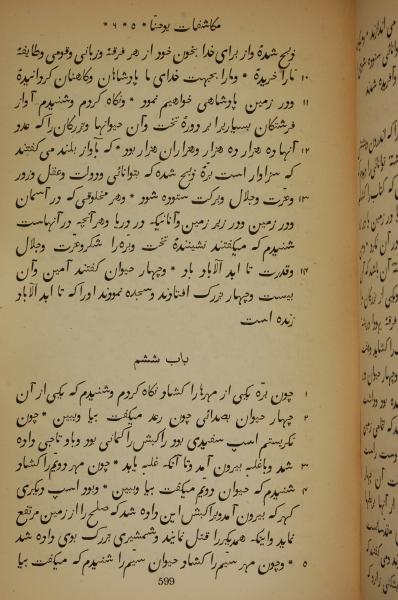 مکاشفات یوحنّا * ۵ * ۶ *
ذبح شدهٔ واز برای خدا بخون خود از هر فرقهٔ وزبانی وقومی وطایفهٔ
۱۰ مارا خریدهٔ * ومارا بجهت خدای ما پادشاهان وکاهنان گردانیدهٔ
۱۱ ودر زمین پادشاهی خواهیم نمود * ونگاه کردم وشنیدم آواز
فرشتگان بسیاررا بر دورهٔ تخت وآن حیوانها وبزرگان را که عدد
۱۲ آنها ده هزار ده هزار وهزاران هزار بود * که باواز بلند می گفتند
که سزاوار است برّهٔ ذبح شده که بتوانائی ودولت وعقل وزور
۱۳ وعزّت وجلال وبرکت ستوده شود * وهر مخلوقی که در آسمان
ودر زمین ودر زیر زمین وآنانیکه در دریا وهرآنچه در آنهاست
شنیدم که میگفتند نشینندهٔ تخت وبرّه را شکر وعزّت وجلال
۱۴ وقدرت تا ابد الآباد باد * وچهار حیوان گفتند آمین وآن
بیست وچهار بزرگ افتادند وسجده نمودند اورا که تا ابد الآباد
زنده است
باب ششم
۱ چون برّه یکی از مهرها را کشاد نگاه کردم وشنیدم که یکی از آن
۲ چهار حیوان بصدائی چون رعد میگفت بیا وببین * چون
نگریستم اسپ سفیدی بود راکبش را کمانی بود وباو تاجی داده
۳ شد وباغلبه بیرون آمد وتا آنکه غلبه یابد * چون مهر دویّم را کشاد
۴ شنیدم که حیوان دویّم میگفت بیا وببین * وبود اسپ دیگری
که بیرون آمد وبراکبش این داده شد که صلح را از زمین مرتفع
نماید واینکه همدیگررا قتل نمایند وشمشیری بزرگ بوی داده شد
۵ * وچون مهر سیّم را کشاد حیوان سیّم را شنیدم که میگفت بیا
599